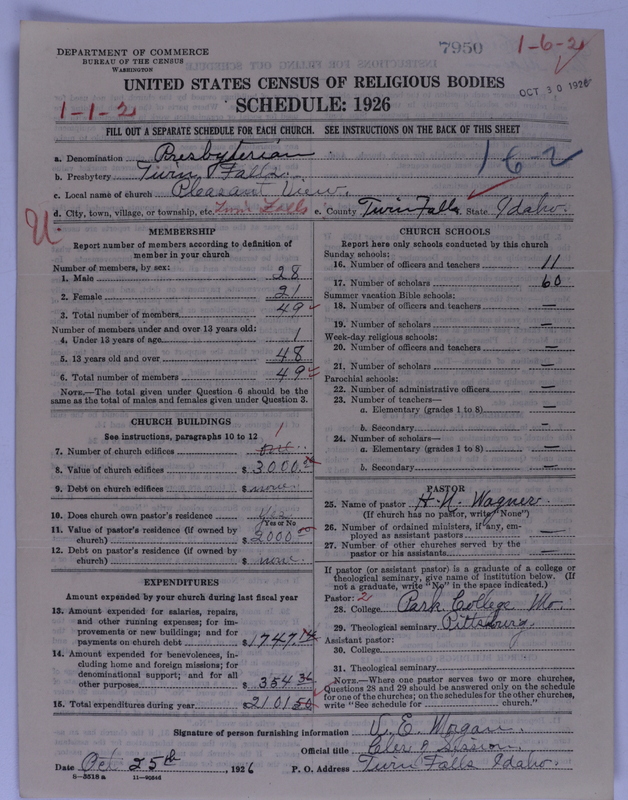 DEPARTMENT OF COMMERCE
BUREAU OF THE CENSUS
WASHINGTON
7950
1-6-2
UNITED STATES CENSUS OF RELIGIOUS BODIES
OCT 30 1926
1-1-2
SCHEDULE: 1926
FILL OUT A SEPARATE SCHEDULE FOR EACH CHURCH. SEE INSTRUCTIONS ON THE BACK OF THIS SHEET
a. Denomination Presbyterian
16-2
b. Presbytery Twin Falls
c. Local name of church Pleasant View.
d. City, town, village, or township, etc. Twin Falls e. County Twin Falls State Idaho.
U
MEMBERSHIP
Report number of members according to definition of
member in your church
Number of members, by sex:
1. Male 28
2. Female 21
3. Total number of members 49
Number of members under and over 13 years old:
4. Under 13 years of age 1
5. 13 years old and over 48
6. Total number of members 49
NOTE.—The total given under Question 6 should be the
same as the total of males and females given under Question 3.
CHURCH BUILDINGS
See instructions, paragraphs 10 to 12
1
7. Number of church edifices one
8. Value of church edifices $ 3000.00
9. Debt on church edifices $ none
10. Does church own pastor's residence Yes
Yes or No
11. Value of pastor's residence (if owned by
church) $ 2000.00
12. Debt on pastor's residence (if owned by
church) $ none
EXPENDITURES
Amount expended by your church during last fiscal year
13. Amount expended for salaries, repairs,
and other running expenses; for im-
provements or new buildings; and for
payments on church debt $ 1747.14
14. Amount expended for benevolences, in-
cluding home and foreign missions; for
denominational support; and for all
other purposes $ 354.36
15. Total expenditures during year $ 2101.50
CHURCH SCHOOLS
Report here only schools conducted by this church
Sunday schools:
16. Number of officers and teachers 11
17. Number of scholars 60
Summer vacation Bible schools:
18. Number of officers and teachers —
19. Number of scholars —
Week-day religious schools:
20. Number of officers and teachers —
21. Number of scholars —
Parochial schools:
22. Number of administrative officers —
23. Number of teachers—
a. Elementary (grades 1 to 8) —
b. Secondary —
24. Number of scholars—
a. Elementary (grades 1 to 8) —
b. Secondary —
PASTOR
25. Name of pastor H. N. Wagner.
(If church has no pastor, write "None")
26. Number of ordained ministers, if any, em-
ployed as assistant pastors —
27. Number of other churches served by the
pastor or his assistants —
If pastor (or assistant pastor) is a graduate of a college or
theological seminary, give name of institution below. (If
not a graduate, write "No" in the space indicated.)
Pastor: 2
28. College Park College Mo.
29. Theological seminary Pittsburg.
Assistant pastor:
30. College
31. Theological seminary
NOTE.—Where one pastor serves two or more churches,
Questions 28 and 29 should be answered only on the schedule
for one of the churches; on the schedules for the other churches,
write "See schedule for church."
Signature of person furnishing information V. E. Morgan.
Official title Cler of Session.
Date Oct 25th, 1926 P. O. Address Twin Falls Idaho.
8—5518 a 11—90546